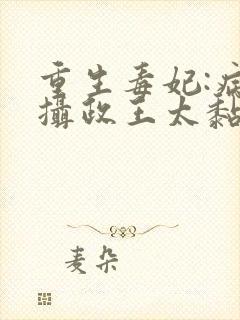 重生毒妃:病
攝政王太黏
麦朵